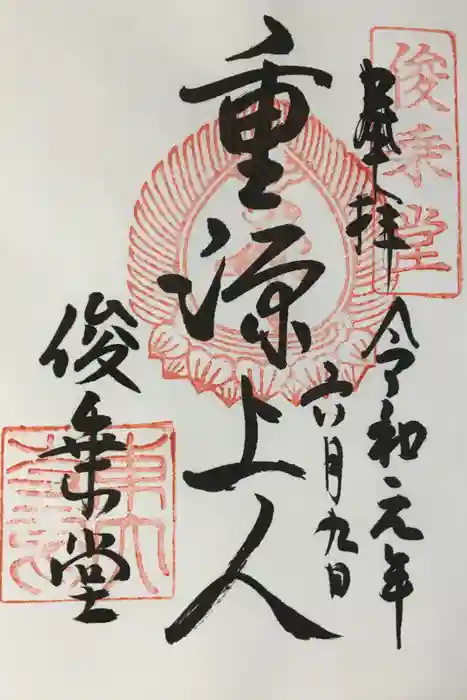 俊乗堂
奉拝
令和元年
六月九日
重源上人
俊乗堂